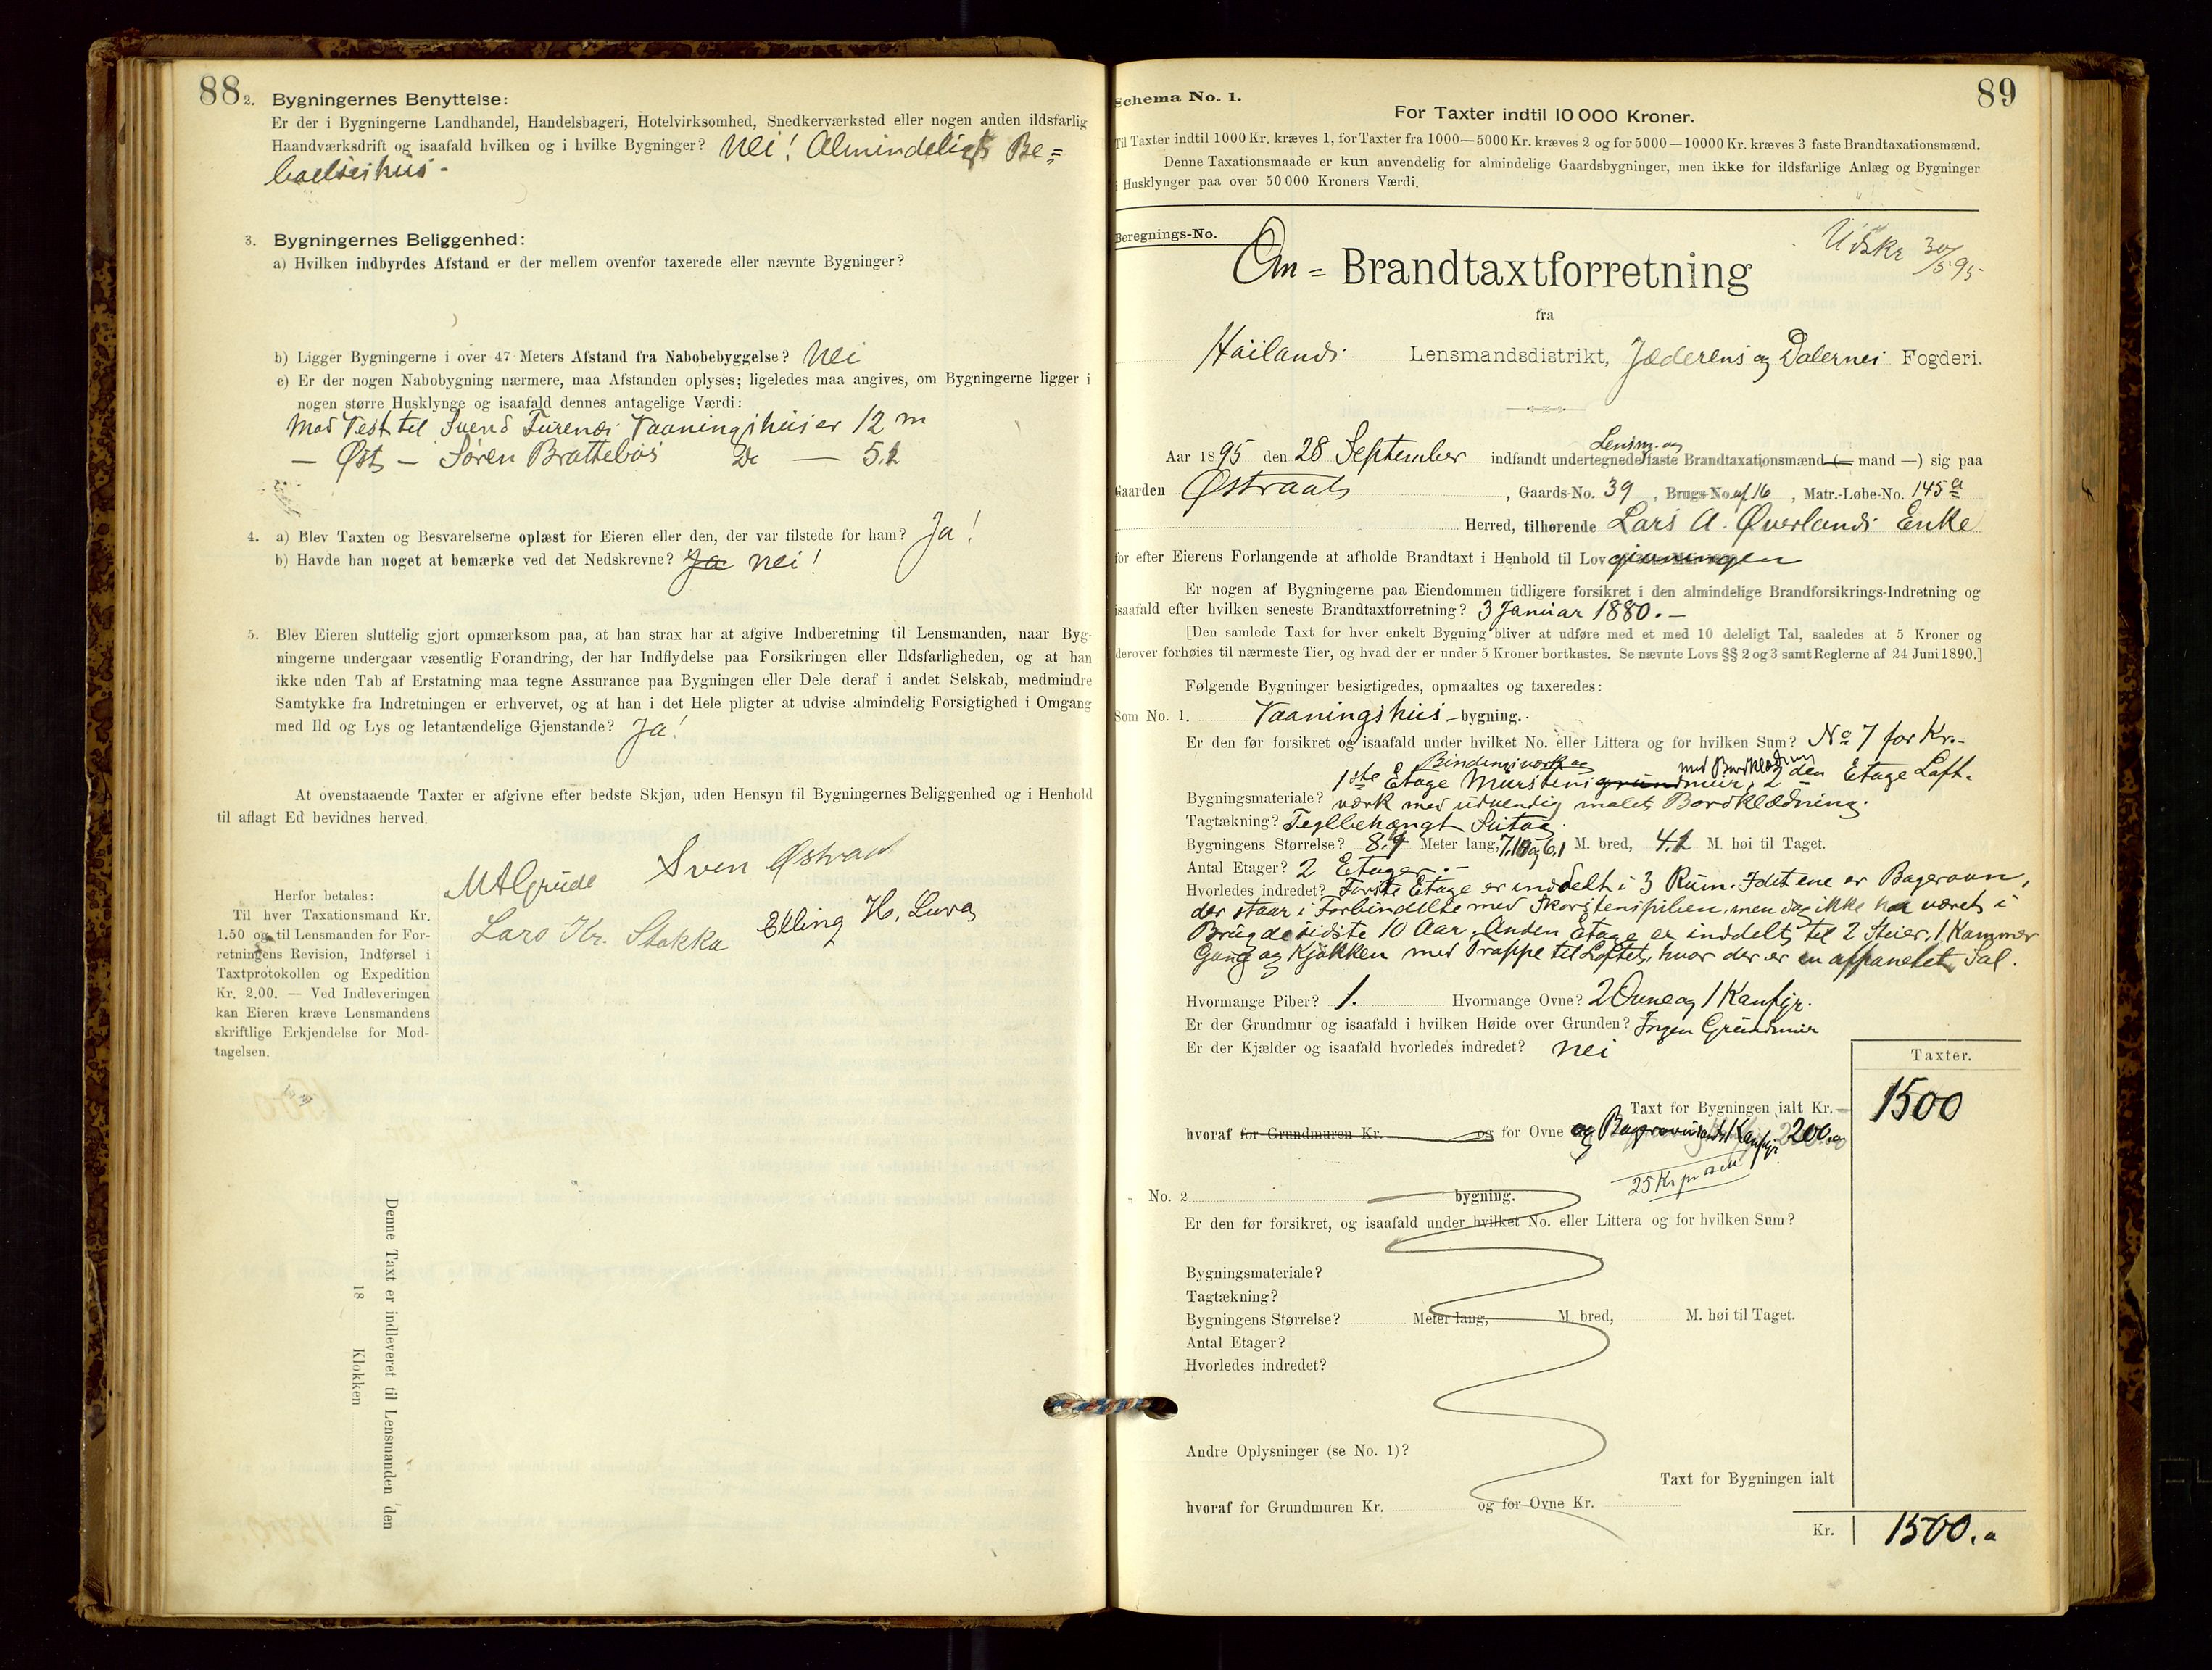 88
2. Bygningernes Benyttelse:
Er der i Bygningerne Landhandel, Handelsbageri, Hotelvirksomhed, Snedkerværksted eller nogen anden ildsfarlig
Haandværksdrift og isaafald hvilken og i hvilke Bygninger? Nei! Almindeligt Be=
boelseshus.
3. Bygningernes Beliggenhed:
a) Hvilken indbyrdes Afstand er der mellem ovenfor taxerede eller nævnte Bygninger?
b) Ligger Bygningerne i over 47 Meters Afstand fra Nabobebyggelse? Nei
c) Er der nogen Nabobygning nærmere, maa Afstanden oplyses; ligeledes maa angives, om Bygningerne ligger i
nogen større Husklynge og isaafald dennes antagelige Værdi:
Mod Vest til Svend Furenes Vaaningshus er 12 m
— Øst — Søren Brattebøs Do — 5.2
4. a) Blev Taxten og Besvarelserne oplæst for Eieren eller den, der var tilstede for ham? Ja!
b) Havde han noget at bemærke ved det Nedskrevne? Ja nei!
5. Blev Eieren sluttelig gjort opmærksom paa, at han strax har at afgive Indberetning til Lensmanden, naar Byg-
ningerne undergaar væsentlig Forandring, der har Indflydelse paa Forsikringen eller Ildsfarligheden, og at han
ikke uden Tab af Erstatning maa tegne Assurance paa Bygningen eller Dele deraf i andet Selskab, medmindre
Samtykke fra Indretningen er erhvervet, og at han i det Hele pligter at udvise almindelig Forsigtighed i Omgang
med Ild og Lys og letantændelige Gjenstande? Ja!
At ovenstaaende Taxter er afgivne efter bedste Skjøn, uden Hensyn til Bygningernes Beliggenhed og i Henhold
til aflagt Ed bevidnes herved.
MAGrude Sven Østraat
Lars Kr. Stokka Elling H. Lura
Herfor betales:
Til hver Taxationsmand Kr.
1.50 og til Lensmanden for For-
retningens Revision, Indførsel i
Taxtprotokollen og Expedition
Kr. 2.00. — Ved Indleveringen
kan Eieren kræve Lensmandens
skriftlige Erkjendelse for Mod-
tagelsen.
Denne Taxt er indleveret til Lensmanden den
18 Klokken
89
Schema No. 1.
For Taxter indtil 10 000 Kroner.
Til Taxter indtil 1000 Kr. kræves 1, for Taxter fra 1000—5000 Kr. kræves 2 og for 5000—10000 Kr. kræves 3 faste Brandtaxationsmænd.
Denne Taxationsmaade er kun anvendelig for almindelige Gaardsbygninger, men ikke for ildsfarlige Anlæg og Bygninger
i Husklynger paa over 50 000 Kroners Værdi.
Beregnings-No.
Udskr 30/5 95
Om = Brandtaxtforretning
fra
Høilands Lensmandsdistrikt, Jæderens og Dalernes Fogderi.
Lensm. og
Aar 1895 den 28 September indfandt undertegnede faste Brandtaxationsmænd (— mand —) sig paa
Gaarden Østraat, Gaards-No. 39, Brugs-No. af 16, Matr.-Løbe-No. 145 a
Herred, tilhørende Lars A. Øverlands Enke
for efter Eierens Forlangende at afholde Brandtaxt i Henhold til Lovgivningen
Er nogen af Bygningerne paa Eiendommen tidligere forsikret i den almindelige Brandforsikrings-Indretning og
isaafald efter hvilken seneste Brandtaxtforretning? 3 Januar 1880. —
[Den samlede Taxt for hver enkelt Bygning bliver at udføre med et med 10 deleligt Tal, saaledes at 5 Kroner og
derover forhøies til nærmeste Tier, og hvad der er under 5 Kroner bortkastes. Se nævnte Lovs §§ 2 og 3 samt Reglerne af 24 Juni 1890.]
Følgende Bygninger besigtigedes, opmaaltes og taxeredes:
Som No. 1. Vaaningshus-bygning.
Er den før forsikret og isaafald under hvilket No. eller Littera og for hvilken Sum? No 7 for Kr.-
Bindingsværk og med Bordklædning
1ste Etage Murstens grundmur, 2den Etage Loft-
Bygningsmateriale? værk med udvendig malet Bordklædning.
Tagtækning? Teglbehængt Sutag
Bygningens Størrelse? 8.9 Meter lang, 7.10 og 6.1 M. bred, 4.2 M. høi til Taget.
Antal Etager? 2 Etager. —
Hvorledes indredet? Første Etage er inddelt i 3 Rum. I det ene er Bagerovn,
der staar i Forbindelse med Skorstenspiben, men dog ikke har været i
Brug de sidste 10 Aar. Anden Etage er inddelt til 2 Stuer, 1 Kammer
Gang og Kjøkken med Trappe til Loftet, hvor der er en afpanelet Sal.
Hvormange Piber? 1. Hvormange Ovne? 2 Ovne og 1 Kamfyr.
Er der Grundmur og isaafald i hvilken Høide over Grunden? Ingen Grundmur
Er der Kjælder og isaafald hvorledes indredet? nei
Taxter.
Taxt for Bygningen ialt Kr. 1500
hvoraf for Grundmuren Kr. og for Ovne og Bagerovn samt Kamfyr 200.
25 Kr pr
No. 2 bygning.
Er den før forsikret, og isaafald under hvilket No. eller Littera og for hvilken Sum?
Bygningsmateriale?
Tagtækning?
Bygningens Størrelse? Meter lang, M. bred, M. høi til Taget.
Antal Etager?
Hvorledes indredet?
Andre Oplysninger (se No. 1)?
Taxt for Bygningen ialt
hvoraf for Grundmuren Kr. og for Ovne Kr.
Kr. 1500.